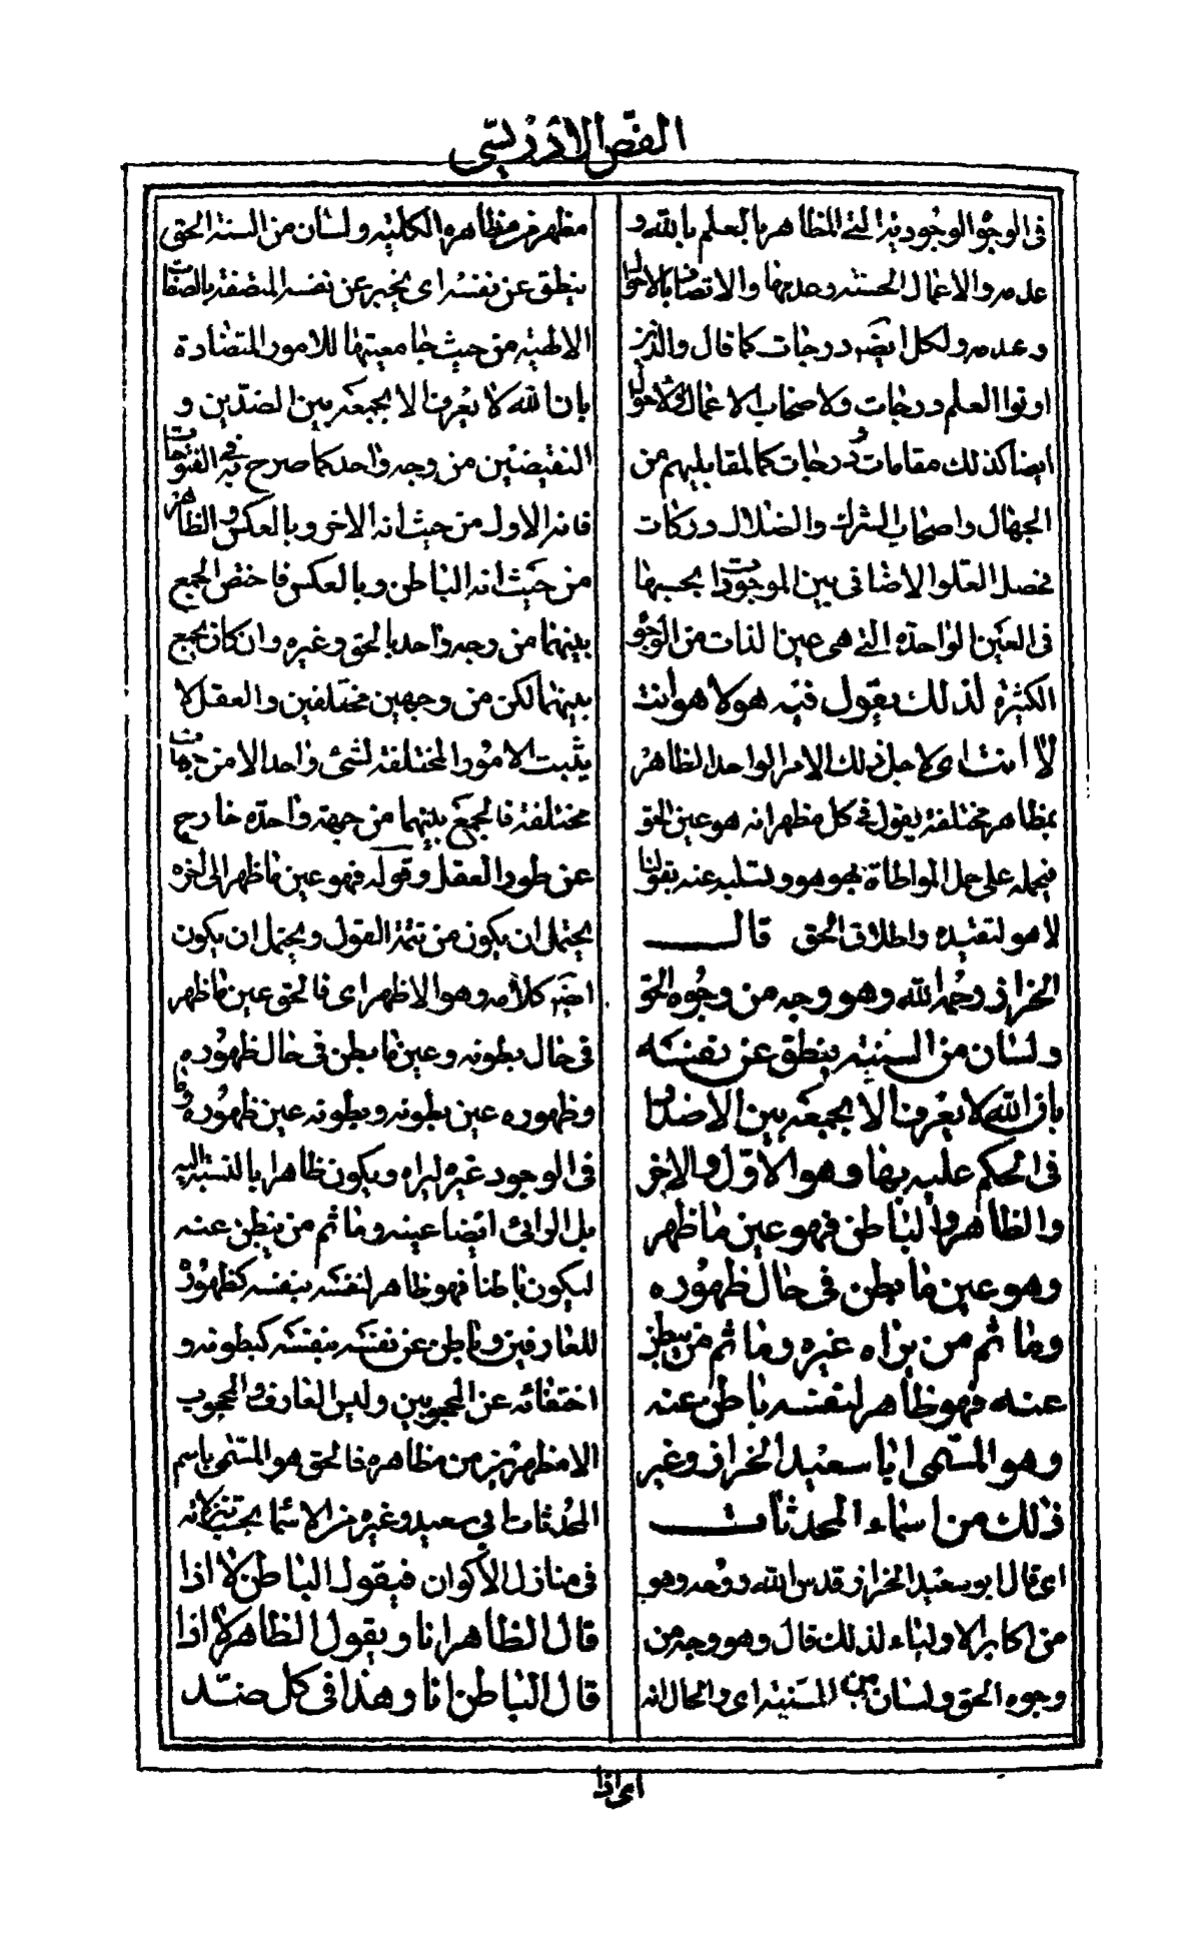 الفصّ الادريسّى
فى الوجوه الوجودية التى المظاهر بالعلم بالله و
عدمه والاعمال الحسنة وعدمها والاتصاف بالاحوال
وعدمه ولكل ايضا درجات كما قال والذين
اوتوا العلم درجات ولاصحاب الاعمال والاحوال
ايضا كذلك مقامات ودرجات كما لمقابليهم من
الجهال واصحاب الشرك والضلال دركات
فحصل العلو الاضافى بين الموجودات بحسبها
فى العين الواحدة التى هى عين الذات من الوجوه
الكثيرة لذلك يقول فيه هو لا هو انت
لا انت اى لاجل ذلك الامر الواحد الظاهر
بمظاهر مختلفة يقول فى كل مظهر انه هو عين الحق
فيحمله على حمل المواطاة بهو هو ويسلبه عنه بقولنا
لا هو لتقيده واطلاق الحق قال
الخراز رحمه الله وهو وجه من وجوه الحق
ولسان من السنته ينطق عن نفسه
بان الله لا يعرف الا بجمعه بين الاضداد
فى الحكم عليه بها وهو الاوّل والاخر
والظاهر والباطن فهو عين ما ظهر
وهو عين ما بطن فى حال ظهوره
وما ثم من يراه غيره وما ثم من يبطن
عنه فهو ظاهر لنفسه باطن عنه
وهو المسمى ابا سعيد الخراز وغير
ذلك من اسماء المحدثات
اى قال ابو سعيد الخراز قدس الله روحه وهو
من اكابر الاولياء لذلك قال وهو وجه من
وجوه الحق ولسان من السنته اى والحال انه
مظهر من مظاهره الكلية ولسان من السنة الحق
ينطق عن نفسه اى يخبر عن نفسه المتصفة بالصفات
الالهية من حيث جامعيتها للامور المتضادة
بان الله لا يعرف الا بجمعه بين الضدّين و
النقيضين من وجه واحد كما صرح به فى الفتوحات
فانه الاول من حيث انه الاخر وبالعكس والظاهر
من حيث انه الباطن وبالعكس فاختص الجمع
بينهما من وجه واحد بالحق وغيره وان كان يجمع
بينهما لكن من وجهين مختلفين والعقل لا
يثبت الامور المختلفة لشئ واحد الا من جهات
مختلفة فالجمع بينهما من جهة واحدة خارج
عن طور العقل وقوله فهو عين ما ظهر الى اخره
يحتمل ان يكون من تتمة القول ويحتمل ان يكون
ايضا كلامه وهو الاظهر اى فالحق عين ما ظهر
فى حال بطونه وعين ما بطن فى حال ظهوره
وظهوره عين بطونه وبطونه عين ظهوره وما
فى الوجود غيره ليراه ويكون ظاهرا بالنسبة اليه
بل الرائى ايضا عينه وما ثم من يبطن عنه
ليكون باطنا فهو ظاهر لنفسه بنفسه كظهوره
للعارفين وباطن عن نفسه بنفسه كبطونه و
اختفائه عن المحجوبين وليس العارف والمحجوب
الا مظهرين من مظاهره فالحق هو المسمى باسم
المحدثات ابى سعيد وغيره من الاسما بحسب تنزلاته
فى منازل الأكوان فيقول الباطن لا اذا
قال الظاهر انا ويقول الظاهر لا اذا
قال الباطن انا وهذا فى كل ضدّ
اى اذا